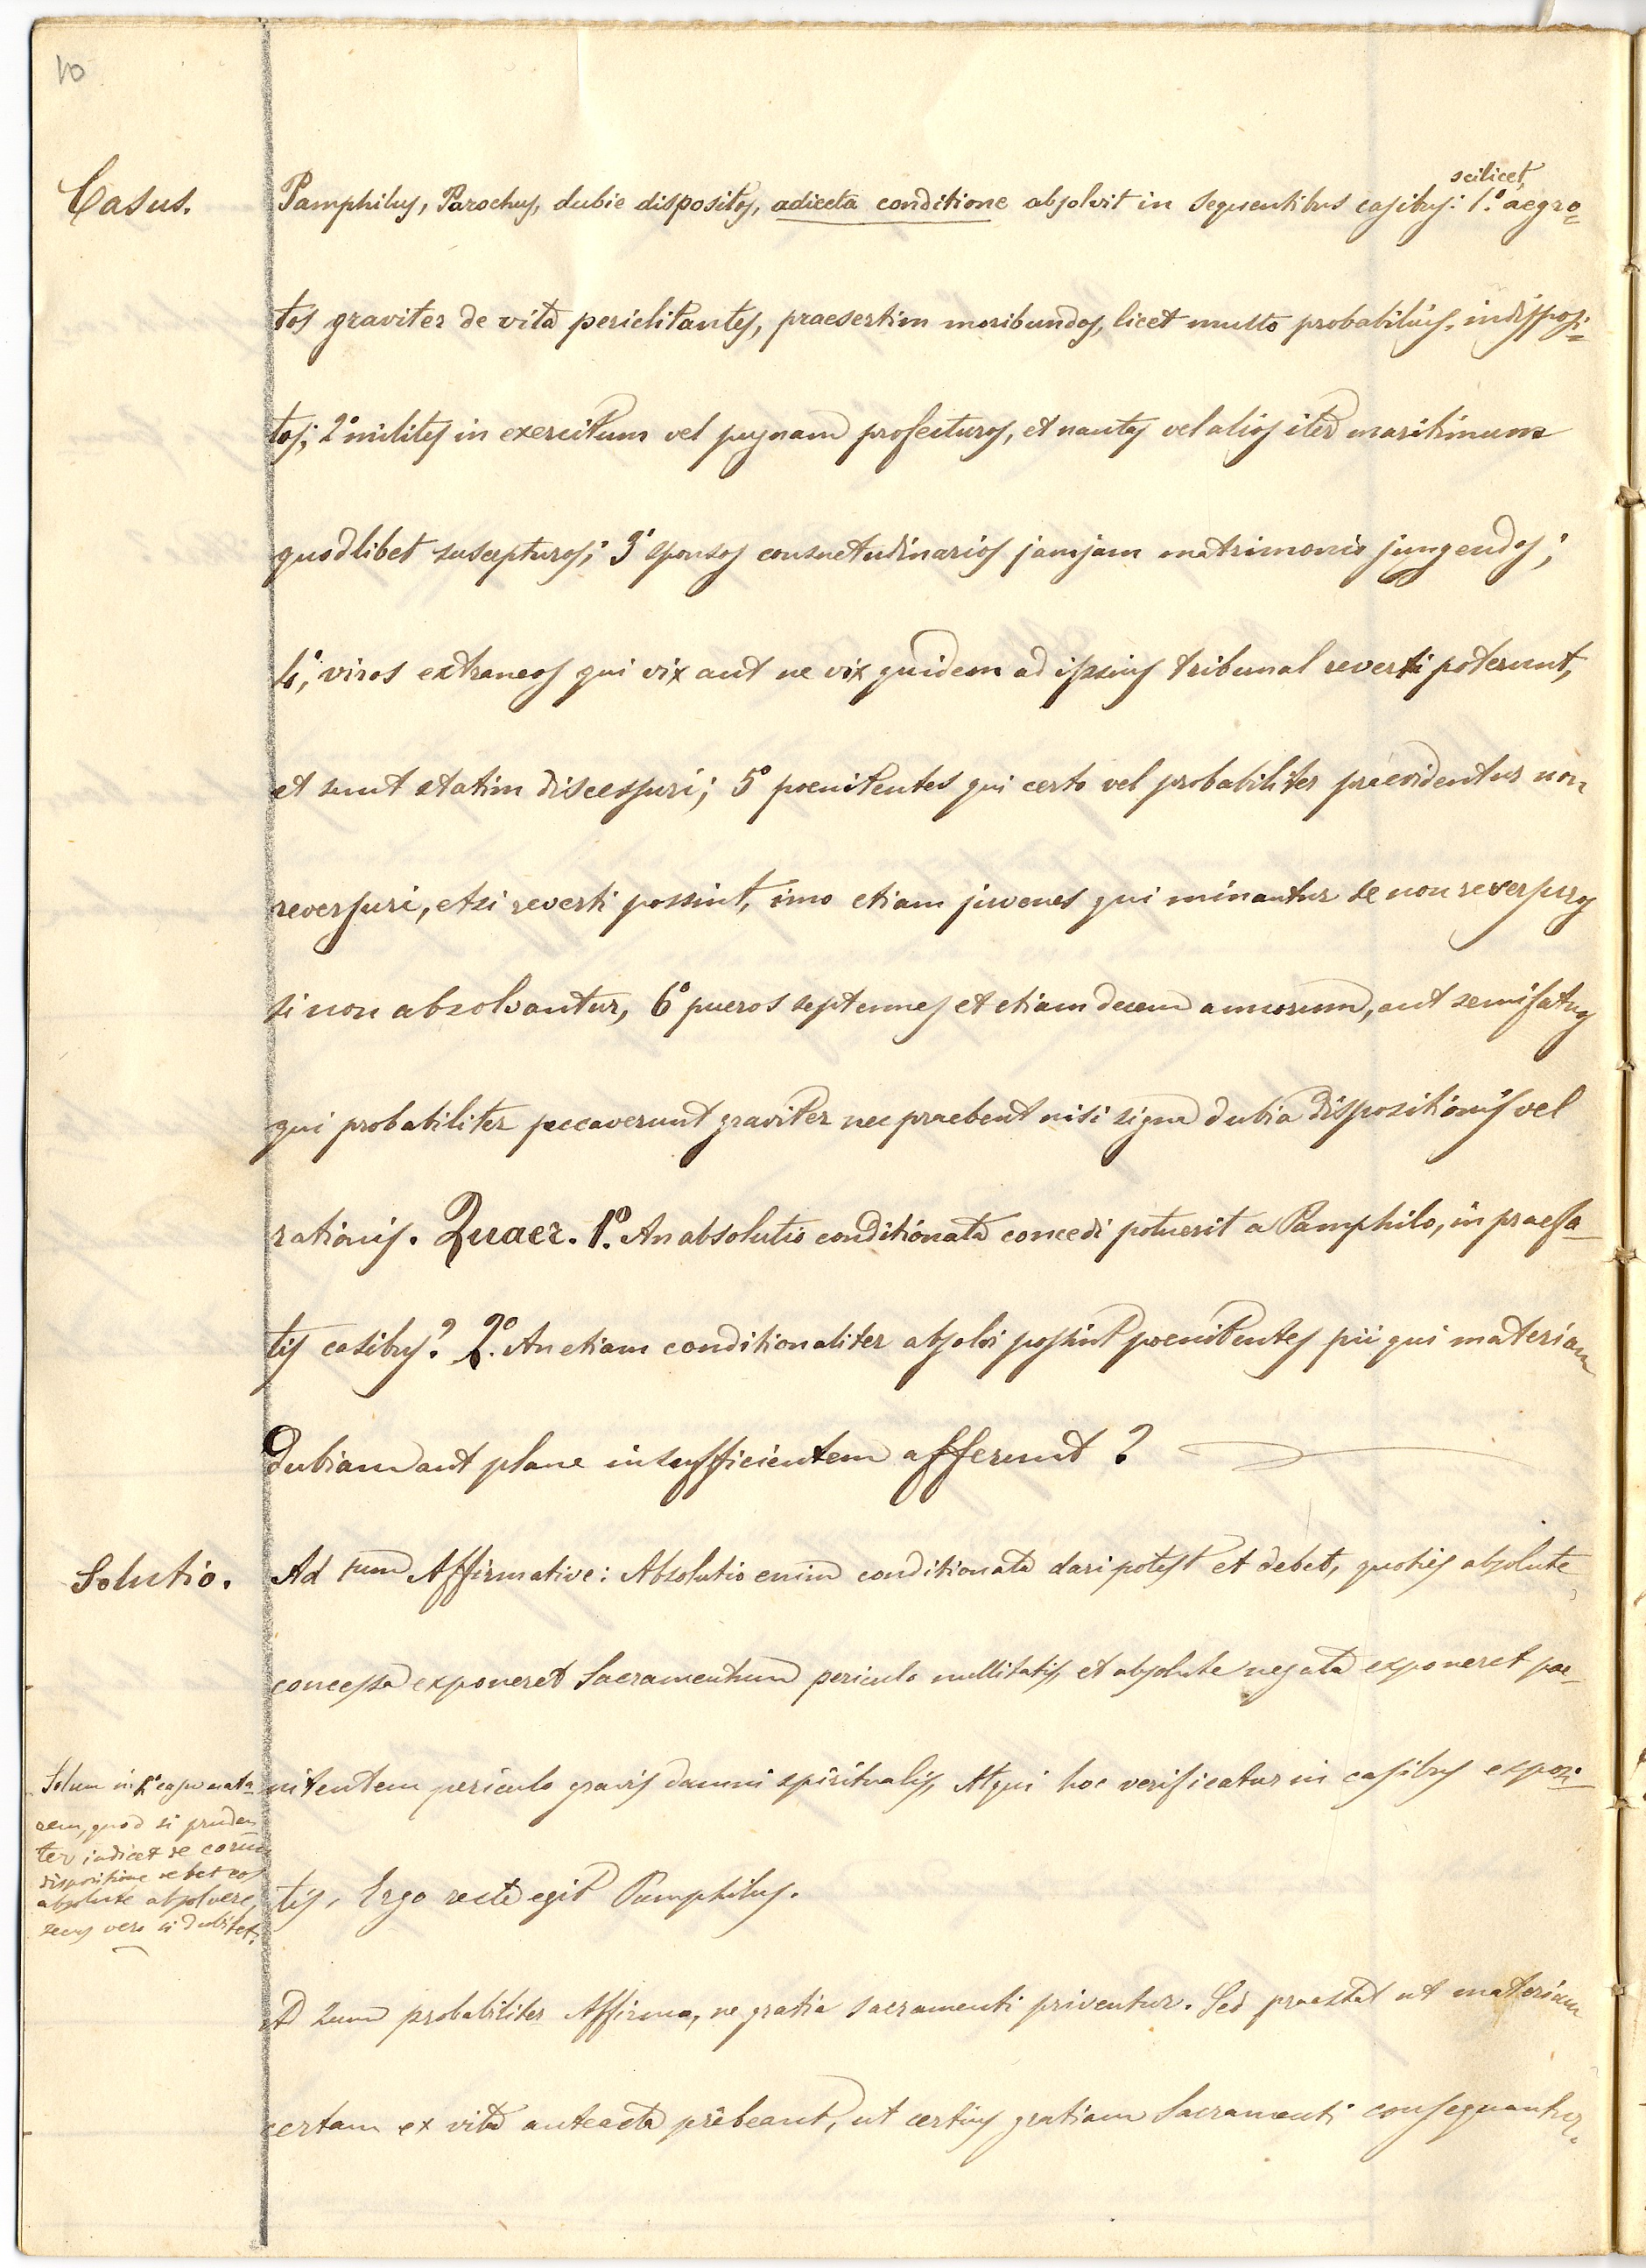 10
Casus.
scilicet,
Pamphilus, Parochus, dubie dispositos, adiecta conditione absolvit in sequentibus casibus: 1.° aegro=
tos graviter de vita periclitantes, praesertim moribundos, licet multo probabilius indisposi=
tos; 2° milites in exercitum vel pugnam profecturos, et nautas vel alios iter maritimum
quodlibet suscepturos; 3° sponsos consuetudinarios jamjam matrimonio jungendos;
4°, viros extraneos qui vix aut ne vix quidem ad ipsius tribunal reverti poterunt,
et sunt statim discessuri; 5° poenitentes qui certo vel probabiliter praevidentur non
reversuri, etsi reverti possint, imo etiam juvenes qui minantur se non reversuros
si non absolvantur, 6° pueros septennes et etiam decem annorum, aut semifatuos
qui probabiliter peccaverunt graviter nec praebent nisi signa dubia dispositionis vel
rationis. Quaer. 1.° An absolutio conditionata concedi potuerit a Pamphilo, in praefa_
tis casibus? 2.° An etiam conditionaliter absolvi possint poenitentes pii qui materiam
dubiam aut plane insufficientem afferunt?
Solutio.
Ad 1um Affirmative: Absolutio enim conditionata dari potest et debet, quoties absolute
concessa exponeret Sacramentum periculo nullitatis, et absolute negata exponeret poe_
nitentem periculo gravis damni spiritualis, Atqui hoc verificatur in casibus exposi_
tis, Ergo recte egit Pamphilus.
Solum in casu nota
rem, quod si pruden
ter iudicet de eorum
dispositione debet eos
absolute absolvere,
secus vero si dubitet.
Ad 2um probabiliter Affirma, ne gratia sacramenti priventur. Sed praestat ut materiam
certam ex vita anteacta prebeant, ut certius gratiam Sacramenti consequantur.